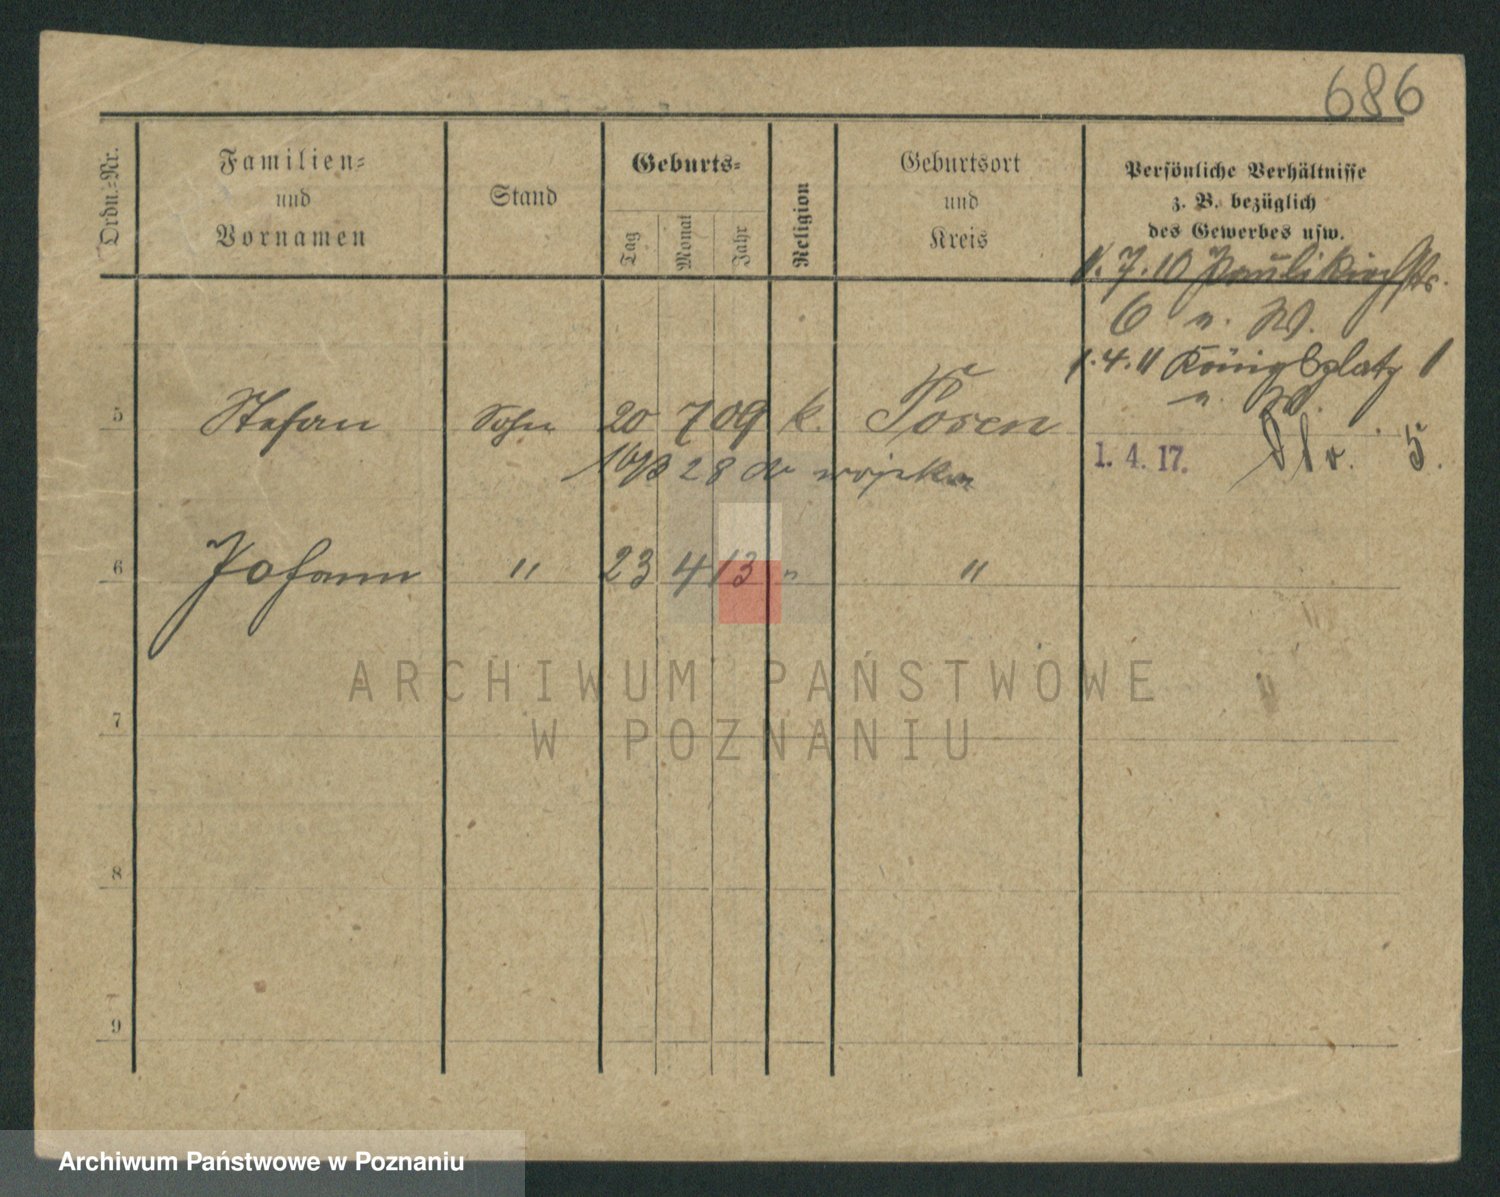 686
Ordn.-Nr.
Familien-
und
Vornamen
Stand
Geburts-
Tag
Monat
Jahr
Religion
Geburtsort
und
Kreis
Persönliche Verhältnisse
z. B. bezüglich
des Gewerbes usw.
1.7.10 Paulikirchstr.
6 n. W.
1.4.11 Königsplatz 1
n. W.
5 Stefan Sohn 20 7 09 k. Posen
1.4.17. 5.
28 do wojska
6 Johann " 23 4 13 " "
7
8
9
ARCHIWUM PAŃSTWOWE
W POZNANIU
Archiwum Państwowe w Poznaniu